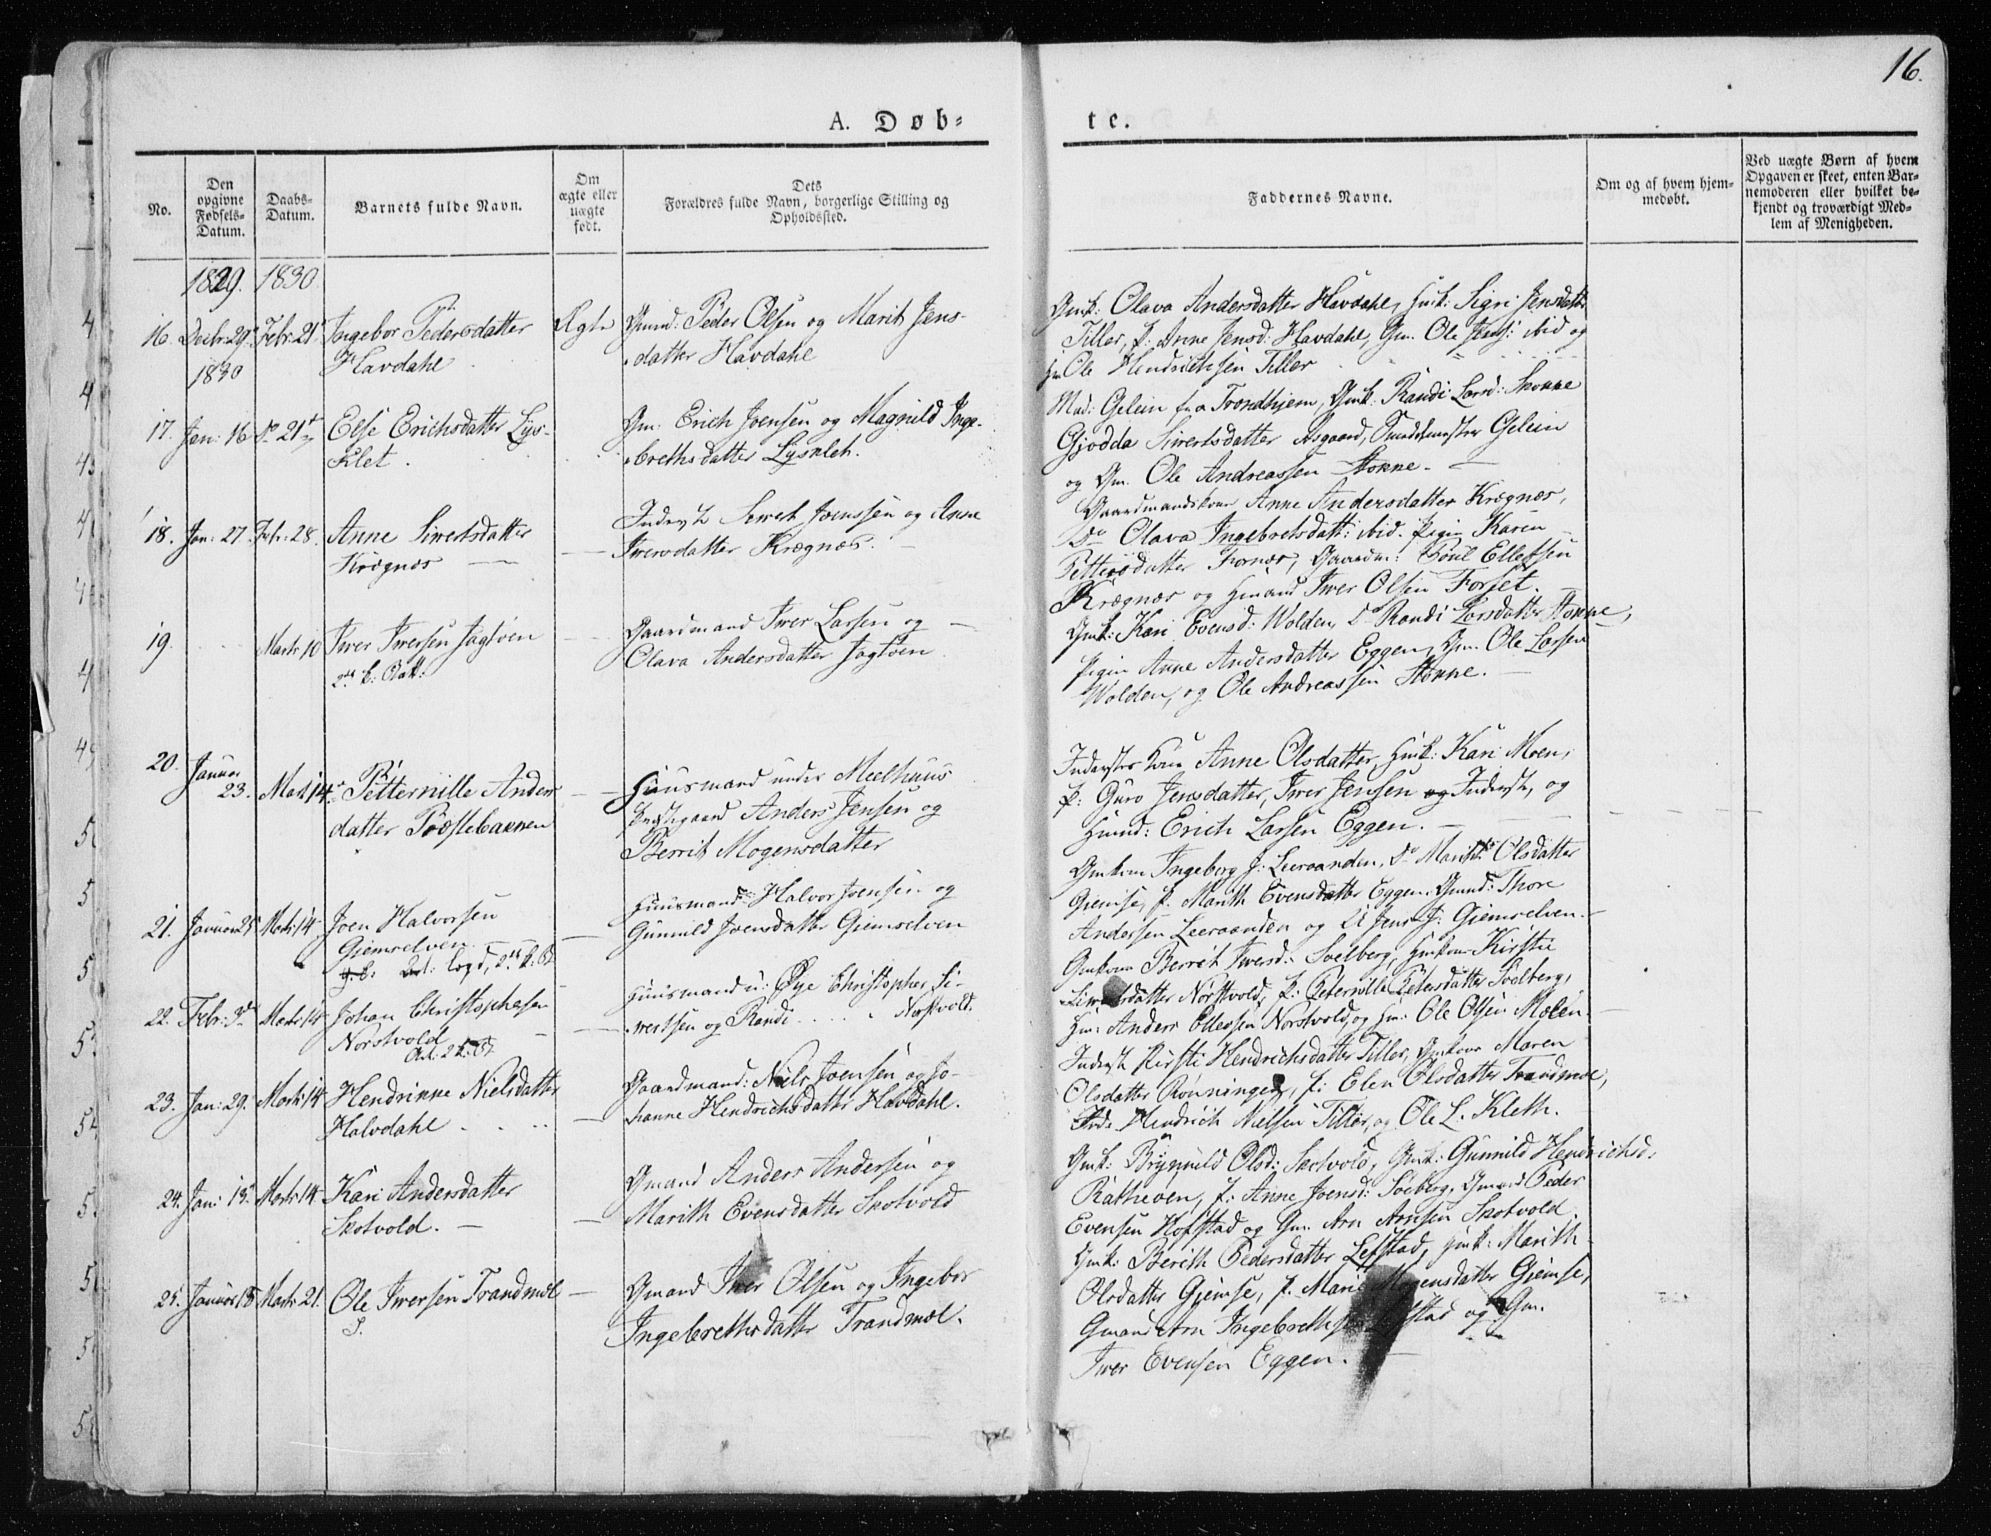 16.
A. Døb-
te.
No.
Den
opgivne
Fødsels-
Datum.
Daabs-
Datum.
Barnets fulde Navn.
Om
ægte eller
uægte
født.
Dets
Forældres fulde Navn, borgerlige Stilling og
Opholdssted.
Faddernes Navne.
Om og af hvem hjem-
medøbt.
Ved uægte Børn af hvem
Opgaven er skeet, enten Bar-
nemoderen eller hvilket be-
kjendt og troværdigt Med-
lem af Menigheden.
1829. 1830
16. Decbr: 29. Febr: 21
1830
Ingebor Pedersdatter
Havdahl
Ægte
Gmd: Peder Olsen og Marit Jens-
datter Havdahl
Gmk: Olava Andersdatter Havdahl, Hmk: Sigri Jensdatt:
Tiller, P. Anne Jensd: Havdahl, Gm. Ole Jens: ibid og
Hm Ole Hendrichsen Tiller
17. Jan: 16 Do 21
Else Erichsdatter Lys-
klet.
Gm. Erich Joensen og Magnild Inge-
brethsdatter Lysklet.
Mad: Gelein fra Trondhjem, Gmk: Randi Larsd:
Gjødda Siwertsdatter Asgaard, Gelein
og Gm. Ole Andreassen
18. Jan: 27. Febr: 28.
Anne Siwertsdatter
Krægnæs
Inderst Siwert Joenssen og Anne
Iwersdatter Krægnæs.
Gaardmandskone Anne Andersdatter Krægnæs,
Do Olava Ingebretsdatt: ibid. Pigen Karen
Pettersdatter Fornæs, Gaardm: Poul Ellefsen
Krægnæs og Hmand Iwer Olsen Forset.
19. Marts 10
Iwer Iwersen Jagtøen
Gaardmand Iwer Larsen og
Olava Andersdatter Jagtøen
Gmk: Kari Evensd: Wolden, Do Randi Larsdatter
Pigen Anne Andersdatter Eggen, Gm. Ole Larsen
Wolden, og Ole Andreassen
20. Januar
23. Marts 14
Petternille Anders
datter Præstebakken
Huusmand under Meelhuus
Præstegaard Anders Jensen og
Berrit Mogensdatter
Inderstes Kone Anne Olsdatter, Hmk: Kari Moen,
P: Guro Jensdatter, Iwer Jensen Inderst, og
Hmd: Erich Larsen Eggen.
21. Januar 25 Marts 14
Joen Halvorsen
Gjemselven
Huusmand Halvor Joensen og
Gunnild Joensdatter Gjemselven
Gmkone Ingeborg J: Leeraanden, Do Marith Olsdatter
Gjemse, P. Marith Evensdatter Eggen, Gmd: Thore
Andersen Leeraanden og Jens J: Gjemselven.
22. Febr: 3 Marts 14
Johan Christophesen
Norstvold
Huusmand u: Øye Christopher Si-
wertsen og Randi . . . . . Norstvold.
Gmkone Berrit Iwersd: Soelberg, Hmkone Kirstie
Siwertsdatter Norstvold, P: Peternille Petersdatter Soelberg,
Hm: Anders Ellefsen Norstvold, og Hm: Ole Olsen Moeen.
23. Jan: 29. Marts 14
Hendrinne Nielsdatter
Halvdahl
Gaardmand: Niels Joensen og Jo-
hanne Hendrichsdatter Havdahl.
Inderst Kirsti Hendrichsdatter Tiller, Gmkone Maren
Olsdatter Rønningen, P: Elen Olsdatter Trandmoe,
Inds Hendrich Nielsen Tiller, og Ole L. Kleth.
24. Jan: 13. Marts 14
Kari Andersdatter
Skotvold.
Gmand Anders Andersen og
Marith Evensdatter Skotvold
Gmk: Brynnild Olsd: Skotvold, Gmk: Gunnild Hendrichsd.
Ratheven, P: Anne Joensd: Søberg, Gmand Peder
Evensen Hofstad og Gm. Arn Arnsen Skotvold.
25. Januar 18 Marts 21.
Ole Iwersen Trandmoe
Gmand Iwer Olsen og Ingebor
Ingebrethsdatter Trandmoe.
Gmk: Berith Pedersdatter Lefstad, Hmk: Marith
Olsdatter Gjemse, P. Marie Mogensdatter Gjemse,
Gmand Arn Ingebrethsen Lefstad og Gm.
Iwer Evensen Eggen.